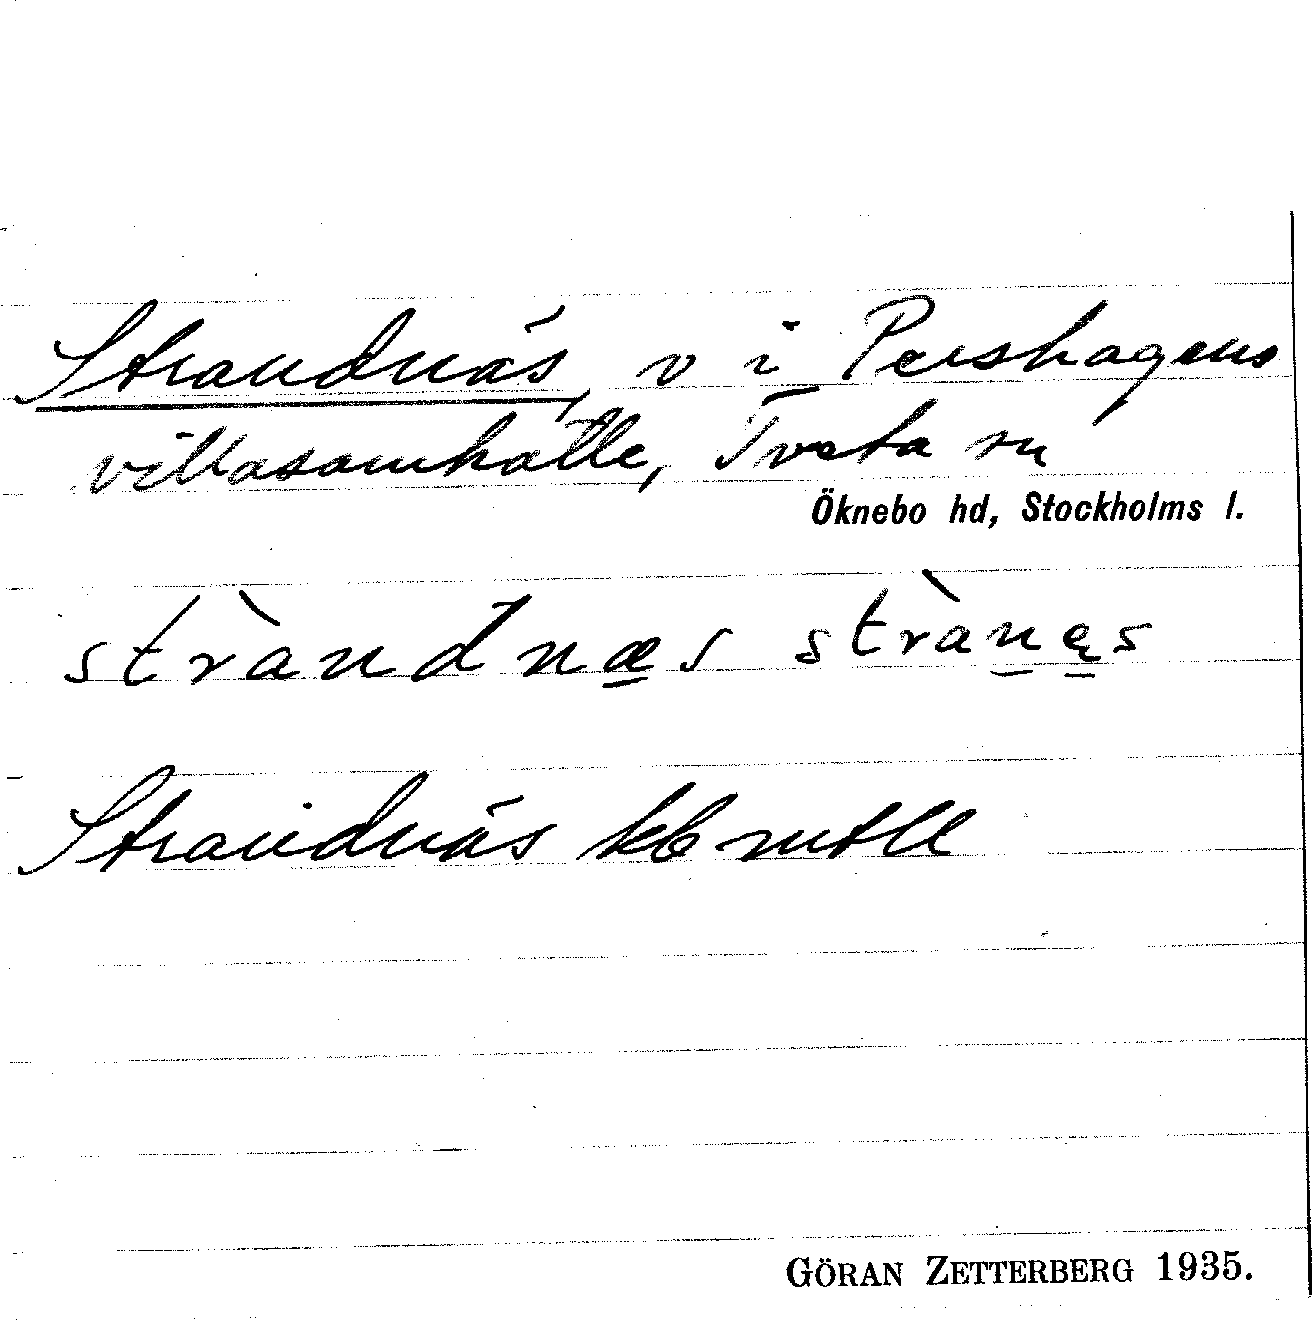 Strandnäs, v i Pershagens
villasamhälle, Tveta sn
Öknebo hd, Stockholms l.
stràndnæs stràn̲ę̲s
Strandnäs
GÖRAN ZETTERBERG 1935.